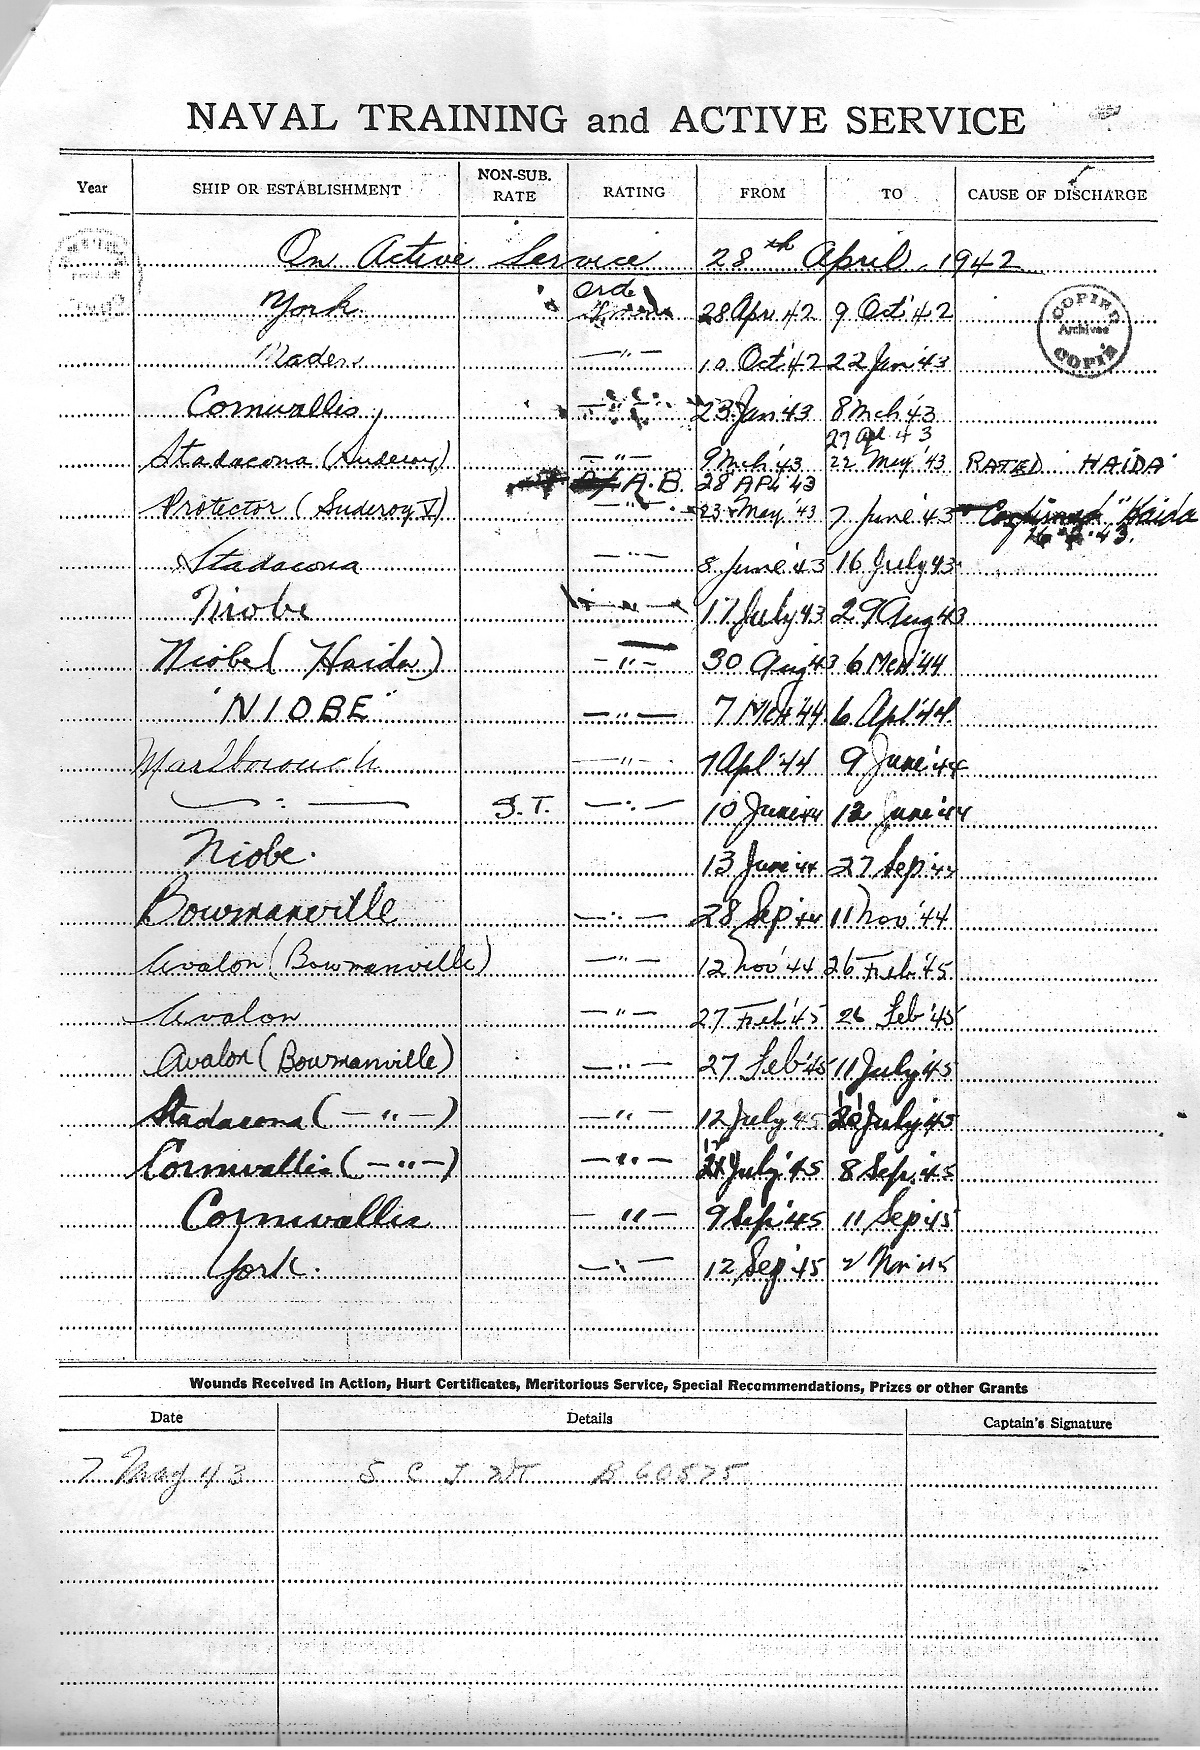 NAVAL TRAINING and ACTIVE SERVICE
Year SHIP OR ESTABLISHMENT NON-SUB. RATE RATING FROM TO CAUSE OF DISCHARGE
On Active Service 28th April, 1942
COPIED Archives COPIÉ
York Ord. 28 Apr '42 9 Oct '42
10 Oct '42 22 Jan '43
Cornwallis —"— 23 Jan '43 8 Mch '43
27 Apl 43
Stadacona (Suderoy) —"— 9 Mch '43 22 May '43 RATED "HAIDA"
A.B. 28 APL '43
Protector (Suderoy V) —"— 23 May '43 7 June '43 "Haida
Stadacona —"— 8 June '43 16 July 43
Niobe —"— 17 July 43 29 Aug 43
Niobe (Haida) —"— 30 Aug 43 6 Mch '44
"NIOBE" —"— 7 Mch '44 6 Apl '44
Marlborough —"— 7 Apl '44 9 June '44
—"— S.T. —"— 10 June 44 12 June '44
Niobe. 13 June 44 27 Sep '44
Bowmanville —"— 28 Sep '44 11 Nov '44
Avalon (Bowmanville) —"— 12 Nov '44 26 Feb '45
Avalon —"— 27 Feb '45 26 Feb '45
Avalon (Bowmanville) —"— 27 Feb '45 11 July '45
Stadacona (—"—) —"— 12 July '45 July '45
Cornwallis (—"—) —"— July '45 8 Sep. '45
Cornwallis —"— 9 Sep '45 11 Sep 45
York. —"— 12 Sep '45 2 Nov '45
Wounds Received in Action, Hurt Certificates, Meritorious Service, Special Recommendations, Prizes or other Grants
Date Details Captain's Signature
7 May 43 B 60575